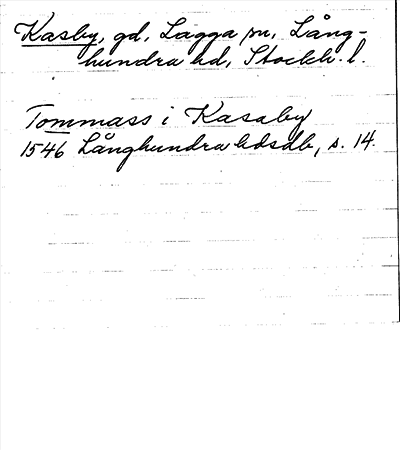 Kasby, gd, Lagga sn, Lång-
hundra hd, Stockh. l.
Tommass i Kasaby
1546 Långhundra hdsdb, s. 14.